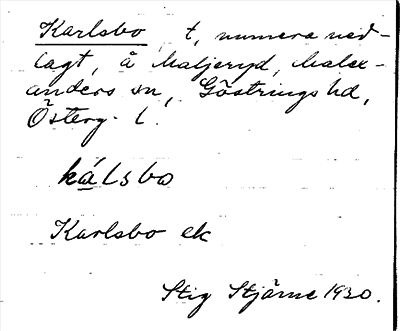 Karlsbo, t, numera ned-
lagt, å Maljeryd, Malex-
anders sn, Göstrings hd,
Österg. l.
kálsbo
Karlsbo ek
Stig Stjärne 1930.